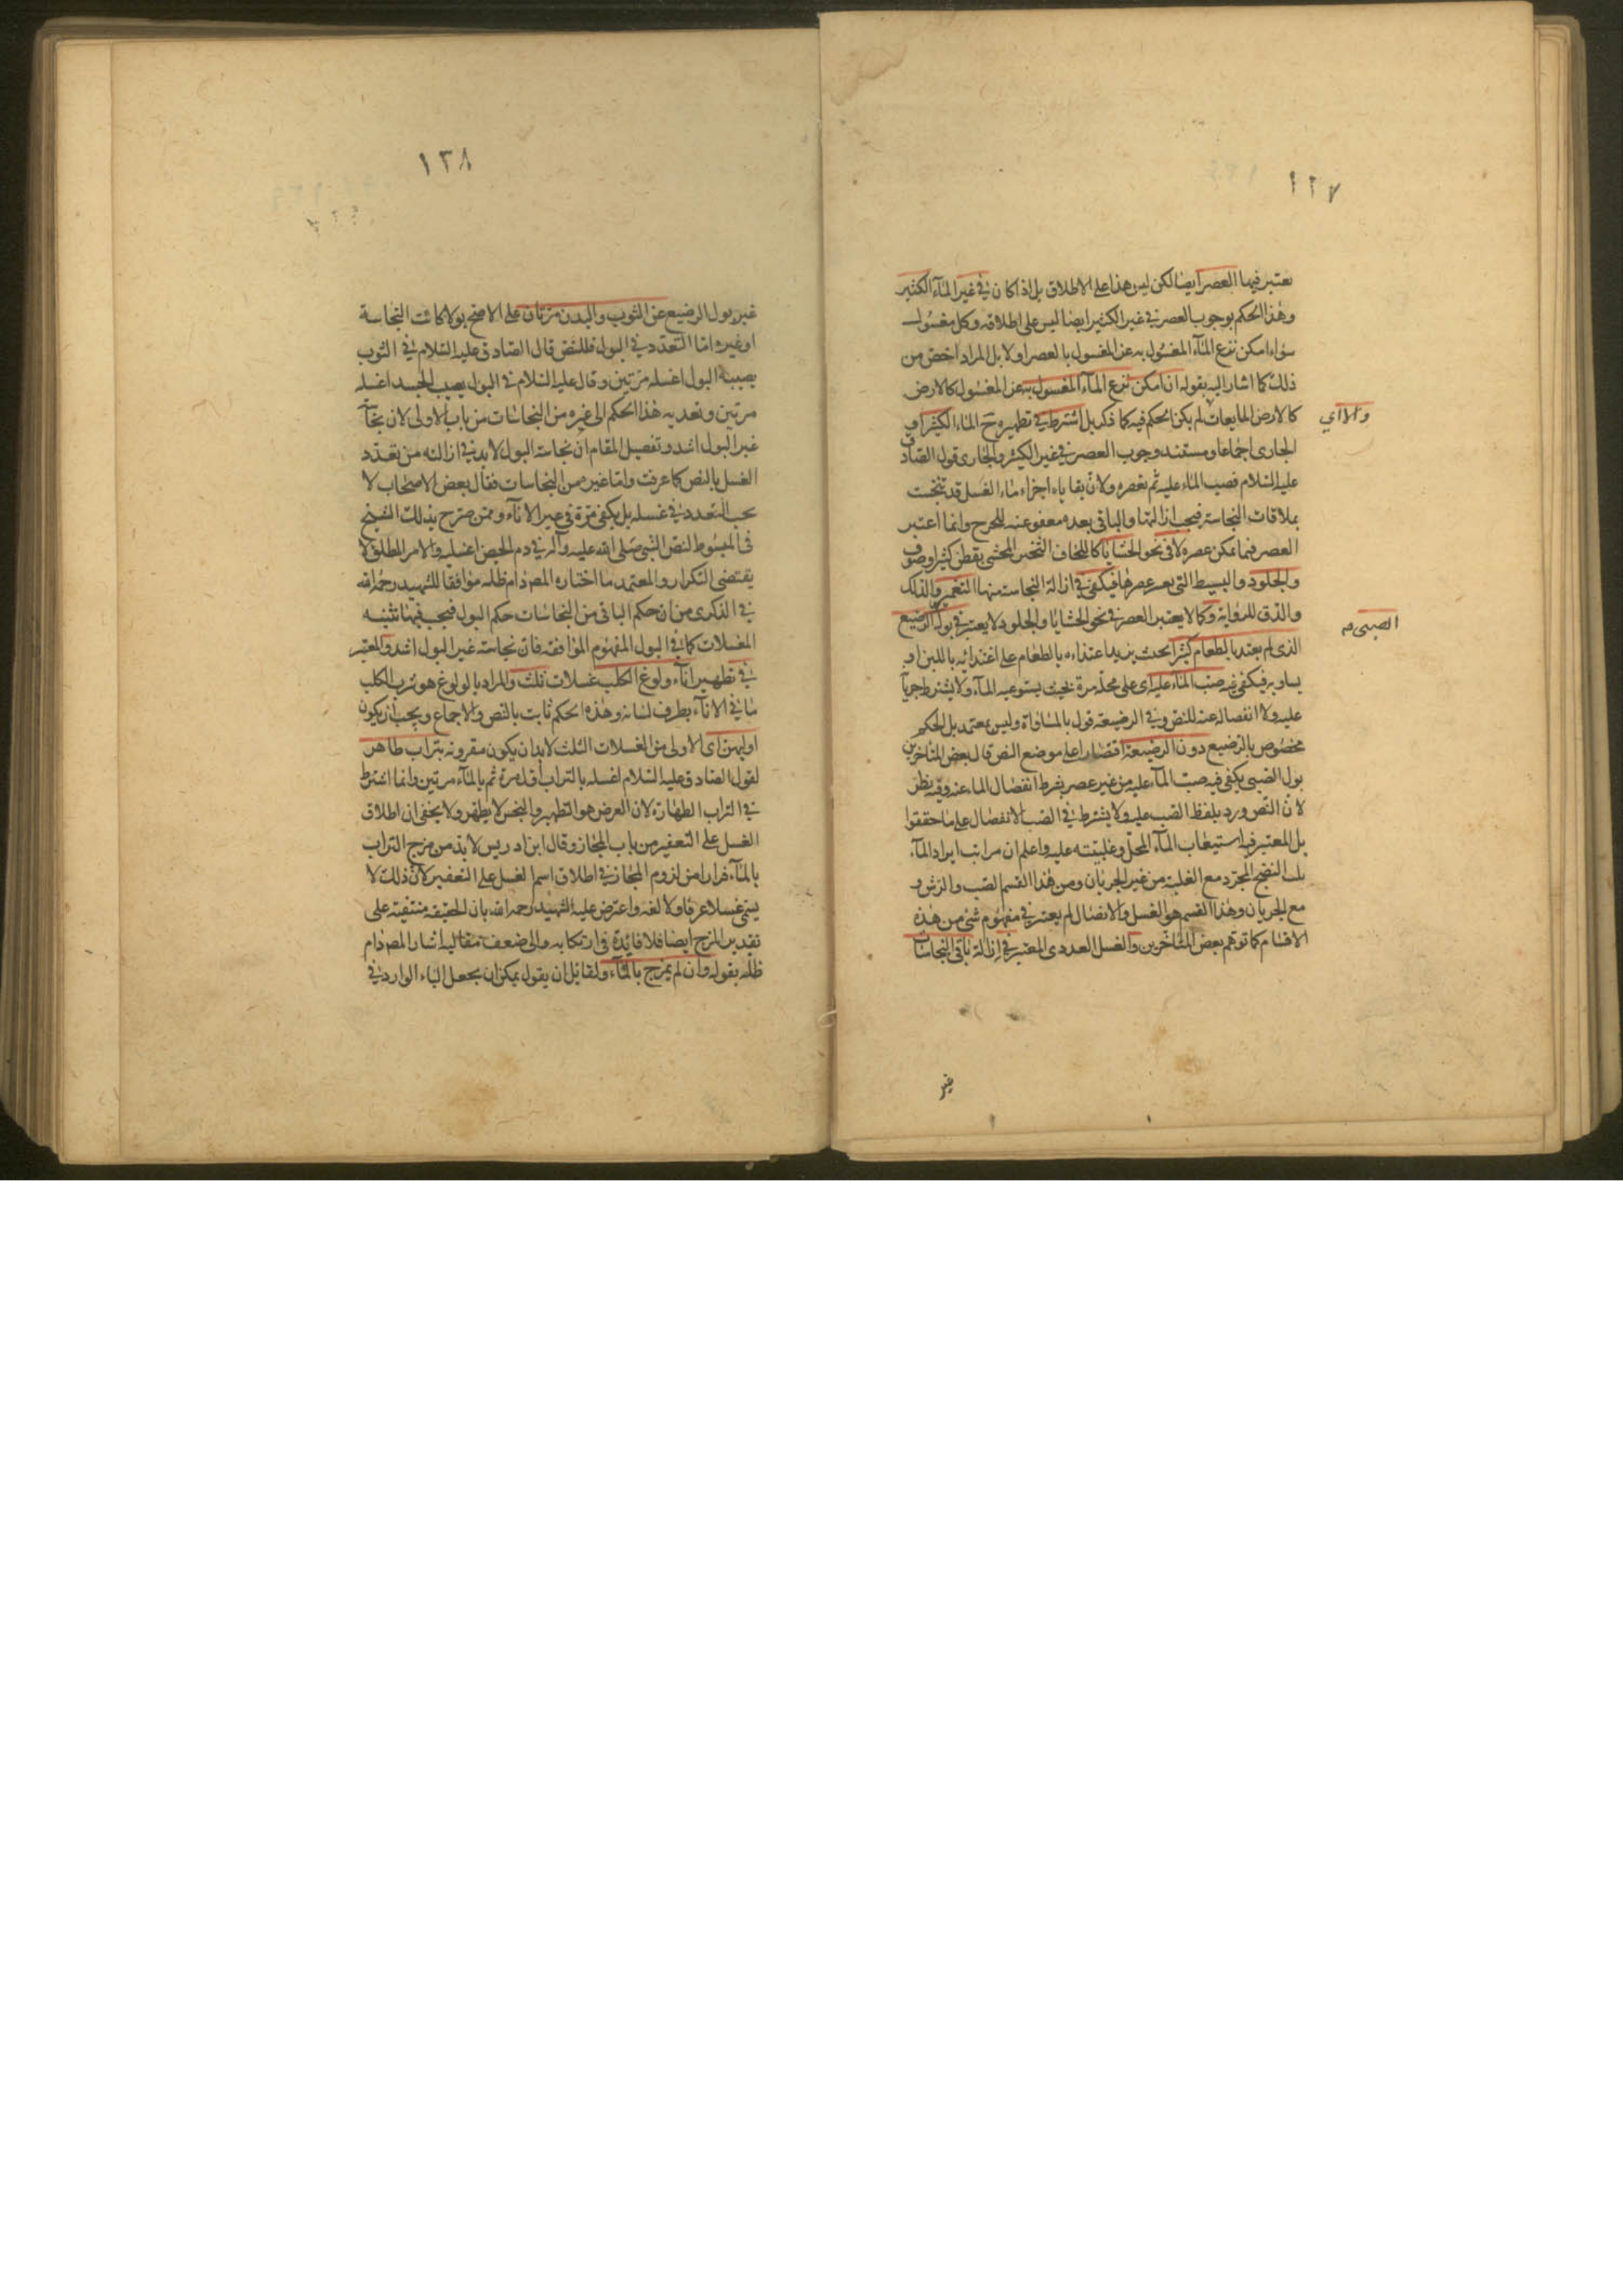 ١٢٧
يعتبر فيها العصر ايضا لكن ليس هذا على الاطلاق بل اذا كان في غير المآء الكثير
وهذا الحكم بوجوب العصر في غير الكثير ايضا ليس على اطلاقه وكل مغسول
سواء امكن نزع المآء المغسول به عن المغسول بالعصر اولا بل المراد اخص من
ذلك كما اشار اليه بقوله ان امكن نزع المآء المغسول به عن المغسول كالارض
والا اي
كالارض المايعات لم يكن الحكم فيه كما ذكر بل اشترط في تطهيره ح الماء الكثير او
الجارى اجماعا ومستند وجوب العصر في غير الكثير والجارى قول الصادق
عليه السلام فصب الماء عليه ثم تعصره ولان بقاياء اجزاء ماء الغسل قد تنجست
بملاقات النجاسة فيجب ازالتها والباقى بعده معفو عنه للحرج وانما اعتبر
العصر فيما يمكن عصره لا في نحو الحشايا كاللحاف الثخين المحشى بقطن كثير او صوف
والجلود والبسط التى يعسر عصرها فيكفى في ازالة النجاسة منها التغميز والدلك
والدق للرواية وكما لا يعتبر العصر في نحو الحشايا والجلود لا يعتبر في بول الرضيع
الصبى م
الذى لم يعتد بالطعام كثيرا بحيث يزيد اعتذاءه بالطعام على اغتذائه باللبن او
يساويه فيكفى فيه صب الماء عليه اى على محله مرة بحيث يستوعبه المآء ولا يشترط جريانه
عليه ولا انفصاله عنه للنص وفي الرضيعة قول بالمساواة وليس بمعتمد بل الحكم
مخصوص بالرضيع دون الرضيعة اقتصارا على موضع النص قال بعض المتاخرين
بول الصبى يكفى فيه صب المآء عليه من غير عصر بشرط انفصال الماء عنه وفيه نظر
لان النص ورد بلفظ الصب عليه ولا يشترط في الصب الانفصال على ما حققوا
بل المعتبر فيه استيعاب المآء المحل وغلبته عليه واعلم ان مراتب ايراد المآء
ثلث النضح المجرد مع الغلبة من غير الجريان ومن هذا القسم الصب والرش و
مع الجريان وهذا القسم هو الغسل والانفصال لم يعتبر في مفهوم شئ من هذه
الاقسام كما توهم بعض المتاخرين والغسل العددى المعتبر في ازالة باقى النجاسات
غير
١٢٨
غير بول الرضيع عن الثوب والبدن مرتان على الاصح بولا كانت النجاسة
او غيره اما التعدد في البول فللنص قال الصادق عليه السلام في الثوب
يصيبه البول اغسله مرتين وقال عليه السلام في البول يصيب الجسد اغسله
مرتين وتعديه هذا الحكم الى غيره من النجاسات من باب الاولى لان نجاسة
غير البول اشد وتفصيل المقام ان نجاسة البول لابد في ازالته من تعدد
الغسل بالنص كما عرفت واما غيره من النجاسات فقال بعض الاصحاب لا
يجب التعدد في غسله بل يكفى مرة في غير الاناء وممن صرح بذلك الشيخ
في المبسوط لنص النبى صلى الله عليه وآله في دم الحيض اغسليه والامر المطلق لا
يقتضى التكرار والمعتمد ما اختاره المص دام ظله موافقا للشهيد رحمه الله
في الذكرى من ان حكم الباقى من النجاسات حكم البول فيجب فيها تثنيه
الغسلات كما في البول المفهوم الموافقه فان نجاسة غير البول اشد والمعتبر
في تطهير انآء ولوغ الكلب غسلات ثلث والمراد بالولوغ هو شرب الكلب
ما في الانآء بطرف لسانه وهذه الحكم ثابت بالنص والاجماع ويجب ان يكون
اوليهن اى الاولى من الغسلات الثلث لابد ان يكون مقرونه بتراب طاهر
لقول الصادق عليه السلام اغسله بالتراب اول مرة ثم بالمآء مرتين وانما اشترط
في التراب الطهارة لان الغرض هو التطهير والنجس لا يطهر ولا يخفى ان اطلاق
الغسل على التعفير من باب المجاز وقال ابن ادريس لابد من مزج التراب
بالمآء فرارا من لزوم المجاز في اطلاق اسم الغسل على التعفير لان ذلك لا
يسمى غسلا عرفا ولا لغه واعترض عليه الشهيد رحمه الله بان الحقيقه منتفية على
تقدير المزج ايضا فلا فائدة في ارتكابه والى ضعف مقاليه اشار المص دام
ظله بقوله وان لم يمزج بالمآء ولقائل ان يقول يمكن ان يجعل الباء الوارد في